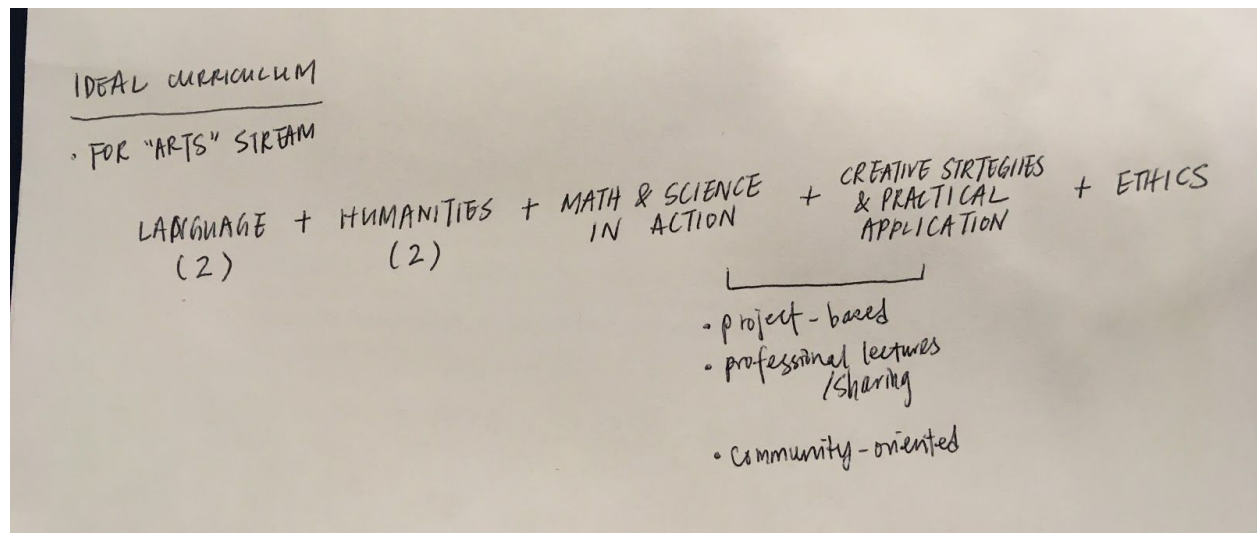 IDEAL CURRICULUM
• FOR "ARTS" STREAM
LANGUAGE + HUMANITIES + MATH & SCIENCE IN ACTION + CREATIVE STRTEGIIES & PRACTICAL APPLICATION + ETHICS
(2) (2)
• project-based
• professional lectures
/sharing
• community-oriented